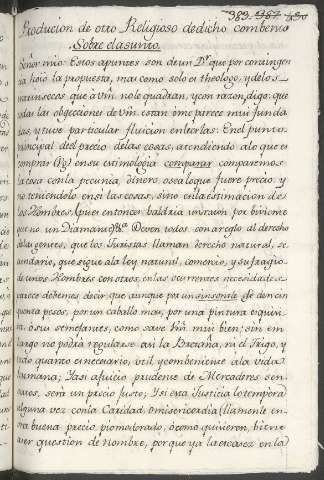 389. 387. 430
Producion de otro Religioso de dicho combento
Sobre el asunto.
Señor mio: Estos apuntes son de un Dr. que por contingen
la propuesta, mas como solo es theologo, y de los
no le quadran, y con razon, digo: que
todas las obgecciones de Vm. estan à me parece mui funda
das, y tuve particular fluicion en leerlas. En el punto
principal del precio de las cosas, atendiendo alo que es
comprar en su etimologia comparar comparemos
la cosa con la pecunia, dinero, osea lo que fuere precio y
no teniendolo en si las cosas, sino en la estimacion de
los Hombres (pues entonces baldria mas un por biviente
que no un Diamante &c.) Deven todos con arreglo al derecho
de las gentes, que los Juristas llaman derecho natural, se
cundario, que sigue ala ley natural, comercio, y sufragio
de unos Hombres con otros, en las ocurrentes necesidades
parece debemos decir que aunque por un sinsonte se den cin
quenta pesos, por un caballo mas, por una pintura
ò su semejantes, como save Vm. mui bien; sin em
bargo no podrà regularse asi la ni el trigo, y
todo quanto es necesario, util, y combeniente ala vida
humana; Y asi ajuicio prudente de Mercaderes sen
satos, serà un precio justo; Y si esta Justicia lo tempera
alguna vez con la Caridad, ò misericordia (llamenle en
ora buena precio piò moderado, ò como quieren, bien
aver question de nombre, por que ya la escasez en la